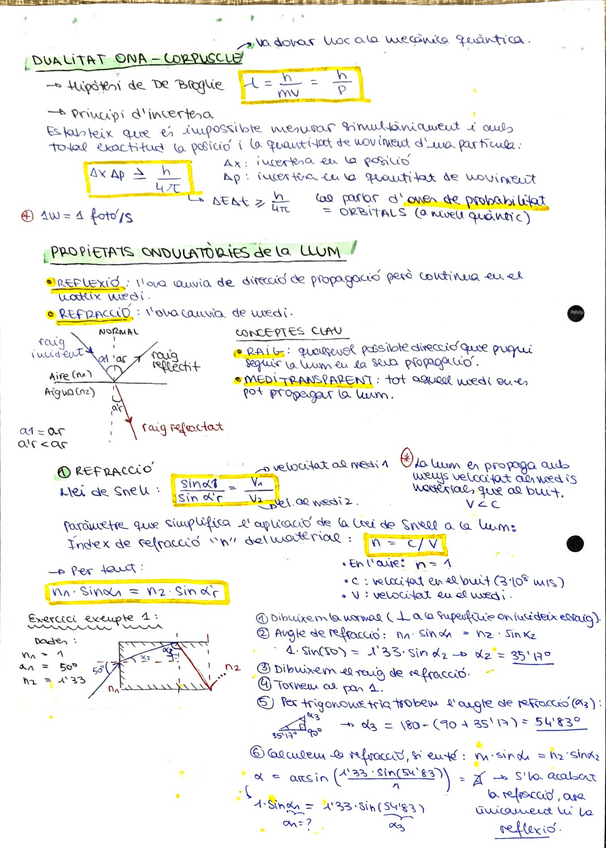 → Va donar lloc a la mecànica quàntica.
DUALITAT ONA-CORPUSCLE
→ Hipòtesi de De Broglie λ = h/mv = h/p
→ Principi d'incertesa
Estableix que és impossible mesurar simultàniament i amb
total exactitud la posició i la quantitat de moviment d'una partícula:
Δx Δp ≥ h/4π
Δx: incertesa en la posició
Δp: incertesa en la quantitat de moviment
→ ΔEΔt ≥ h/4π
Cal parlar d'ones de probabilitat
= ORBITALS (a nivell quàntic)
* 1W = 1 fotó/s
PROPIETATS ONDULATÒRIES de la LLUM
• REFLEXIÓ: l'ona canvia de direcció de propagació però continua en el
mateix medi.
• REFRACCIÓ: l'ona canvia de medi.
NORMAL
raig
incident
α1 αr
raig
reflectit
Aire (n1)
Aigua (n2)
α'r
raig refractat
α1 = αr
α'r < αr
CONCEPTES CLAU
• RAIG: qualsevol possible direcció que pugui
seguir la llum en la seva propagació.
• MEDI TRANSPARENT: tot aquell medi on es
pot propagar la llum.
① REFRACCIÓ
Llei de Snell: sinα1/sinα'r = V1/V2
→ velocitat al medi 1
→ vel. al medi 2.
* La llum es propaga amb
menys velocitat als medis
materials que al buit.
V < C
Paràmetre que simplifica l'aplicació de la Llei de Snell a la llum:
Índex de refracció "n" del material: n = C/V
• En l'aire: n = 1
• C: velocitat en el buit (3·10⁸ m/s)
• V: velocitat en el medi.
→ Per tant:
n1·sinα1 = n2·sinα'r
Exercici exemple 1:
Dades:
n1 = 1
α1 = 50º
n2 = 1'33
50º
α2
α3
n1
n2
① Dibuixem la normal (⊥ a la superfície on incideix es raig).
② Angle de refracció: n1·sinα1 = n2·sinα2
1·sin(50) = 1'33·sinα2 → α2 = 35'17º
③ Dibuixem el raig de refracció.
④ Tornem al pas 1.
⑤ Per trigonometria trobem l'angle de refracció (α3):
α3
35'17º 90º
→ α3 = 180 - (90 + 35'17) = 54'83º
⑥ Calculem la refracció, si en té: n1·sinα1 = n2·sinα2
α = arcsin (1'33·sin(54'83)/1) = ∄ → S'ha acabat
la refracció, ara
únicament hi ha
reflexió.
1·sinα1 = 1'33·sin(54'83)
α1=? α3